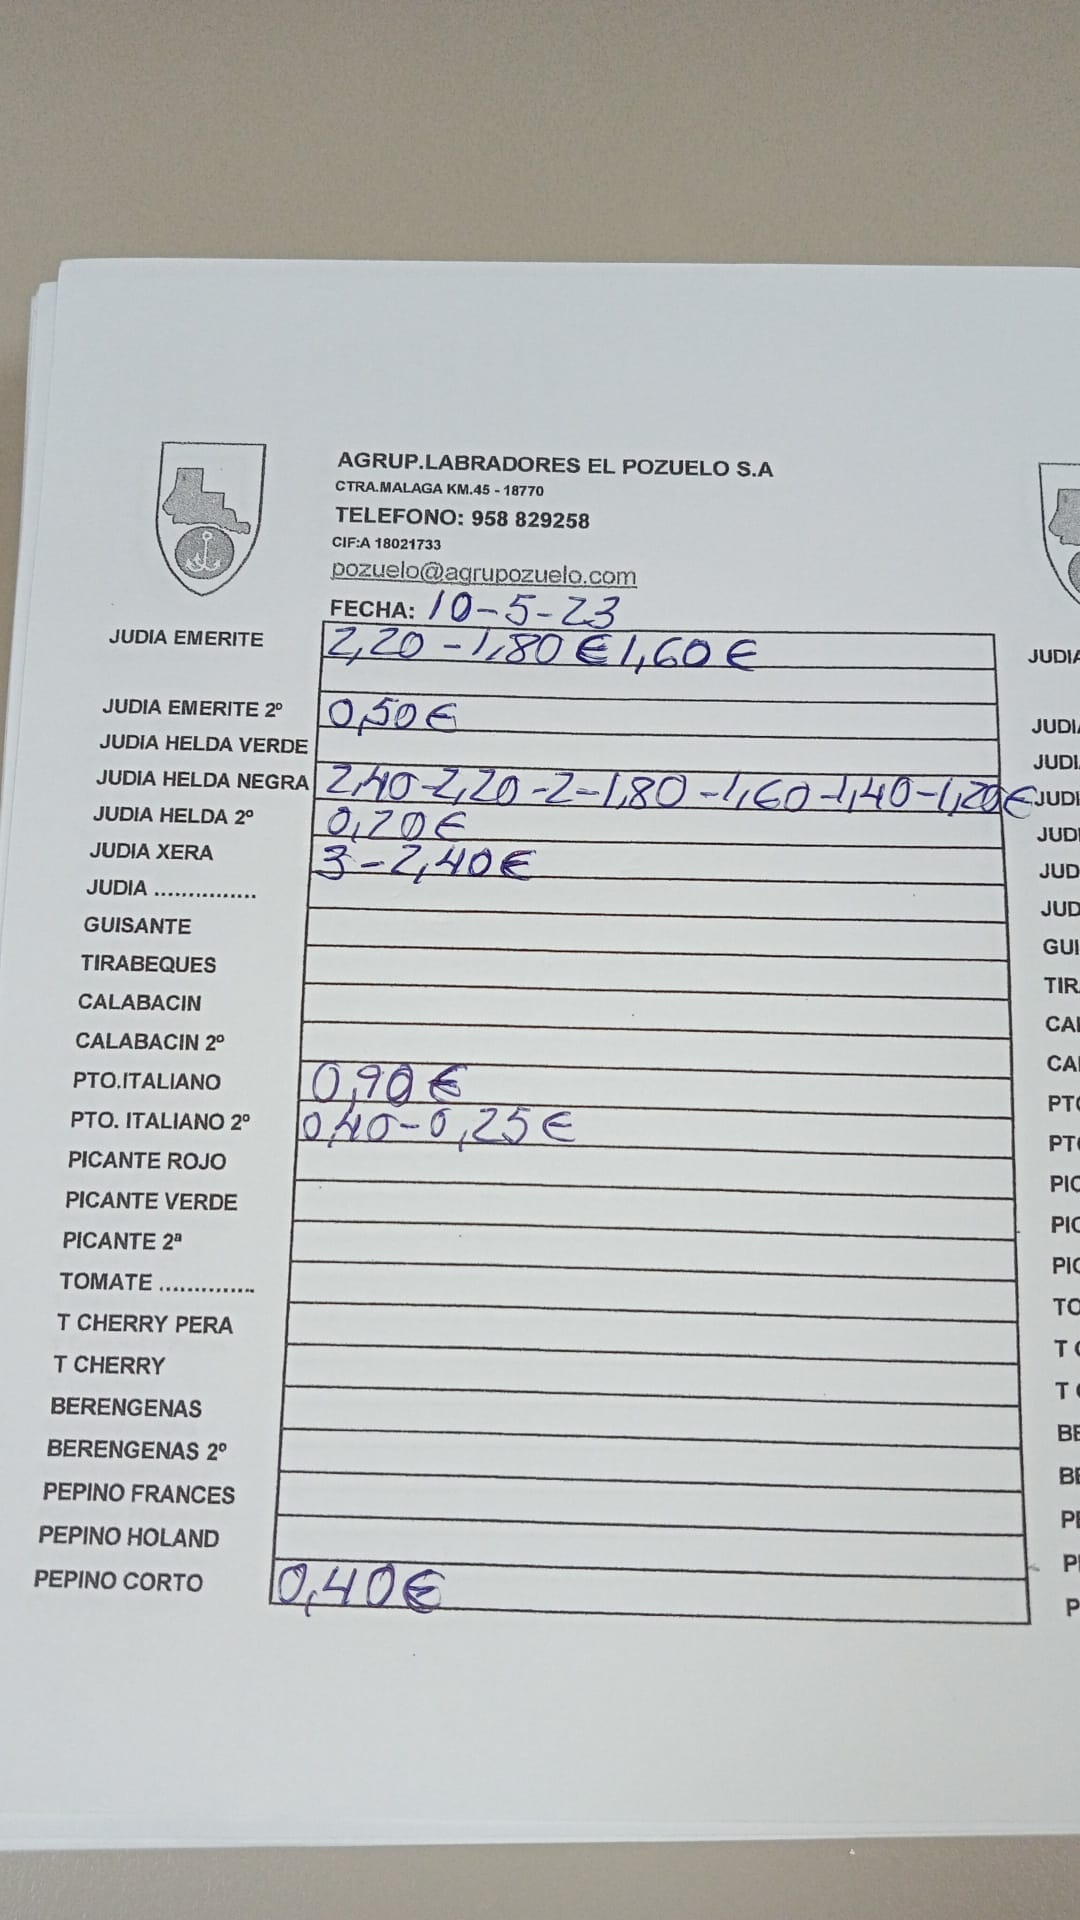 AGRUP.LABRADORES EL POZUELO S.A
CTRA.MALAGA KM.45 - 18770
TELEFONO: 958 829258
CIF:A 18021733
pozuelo@agrupozuelo.com
FECHA: 10-5-23
JUDIA EMERITE 2,20 - 1,80 € 1,60 €
JUDIA EMERITE 2º 0,50 €
JUDIA HELDA VERDE
JUDIA HELDA NEGRA 2,40-2,20-2-1,80-1,60-1,40-1,20€
JUDIA HELDA 2º 0,20€
JUDIA XERA 3-2,40€
JUDIA ...............
GUISANTE
TIRABEQUES
CALABACIN
CALABACIN 2º
PTO.ITALIANO 0,90 €
PTO. ITALIANO 2º 0,40-0,25€
PICANTE ROJO
PICANTE VERDE
PICANTE 2ª
TOMATE ..............
T CHERRY PERA
T CHERRY
BERENGENAS
BERENGENAS 2º
PEPINO FRANCES
PEPINO HOLAND
PEPINO CORTO 0,40€